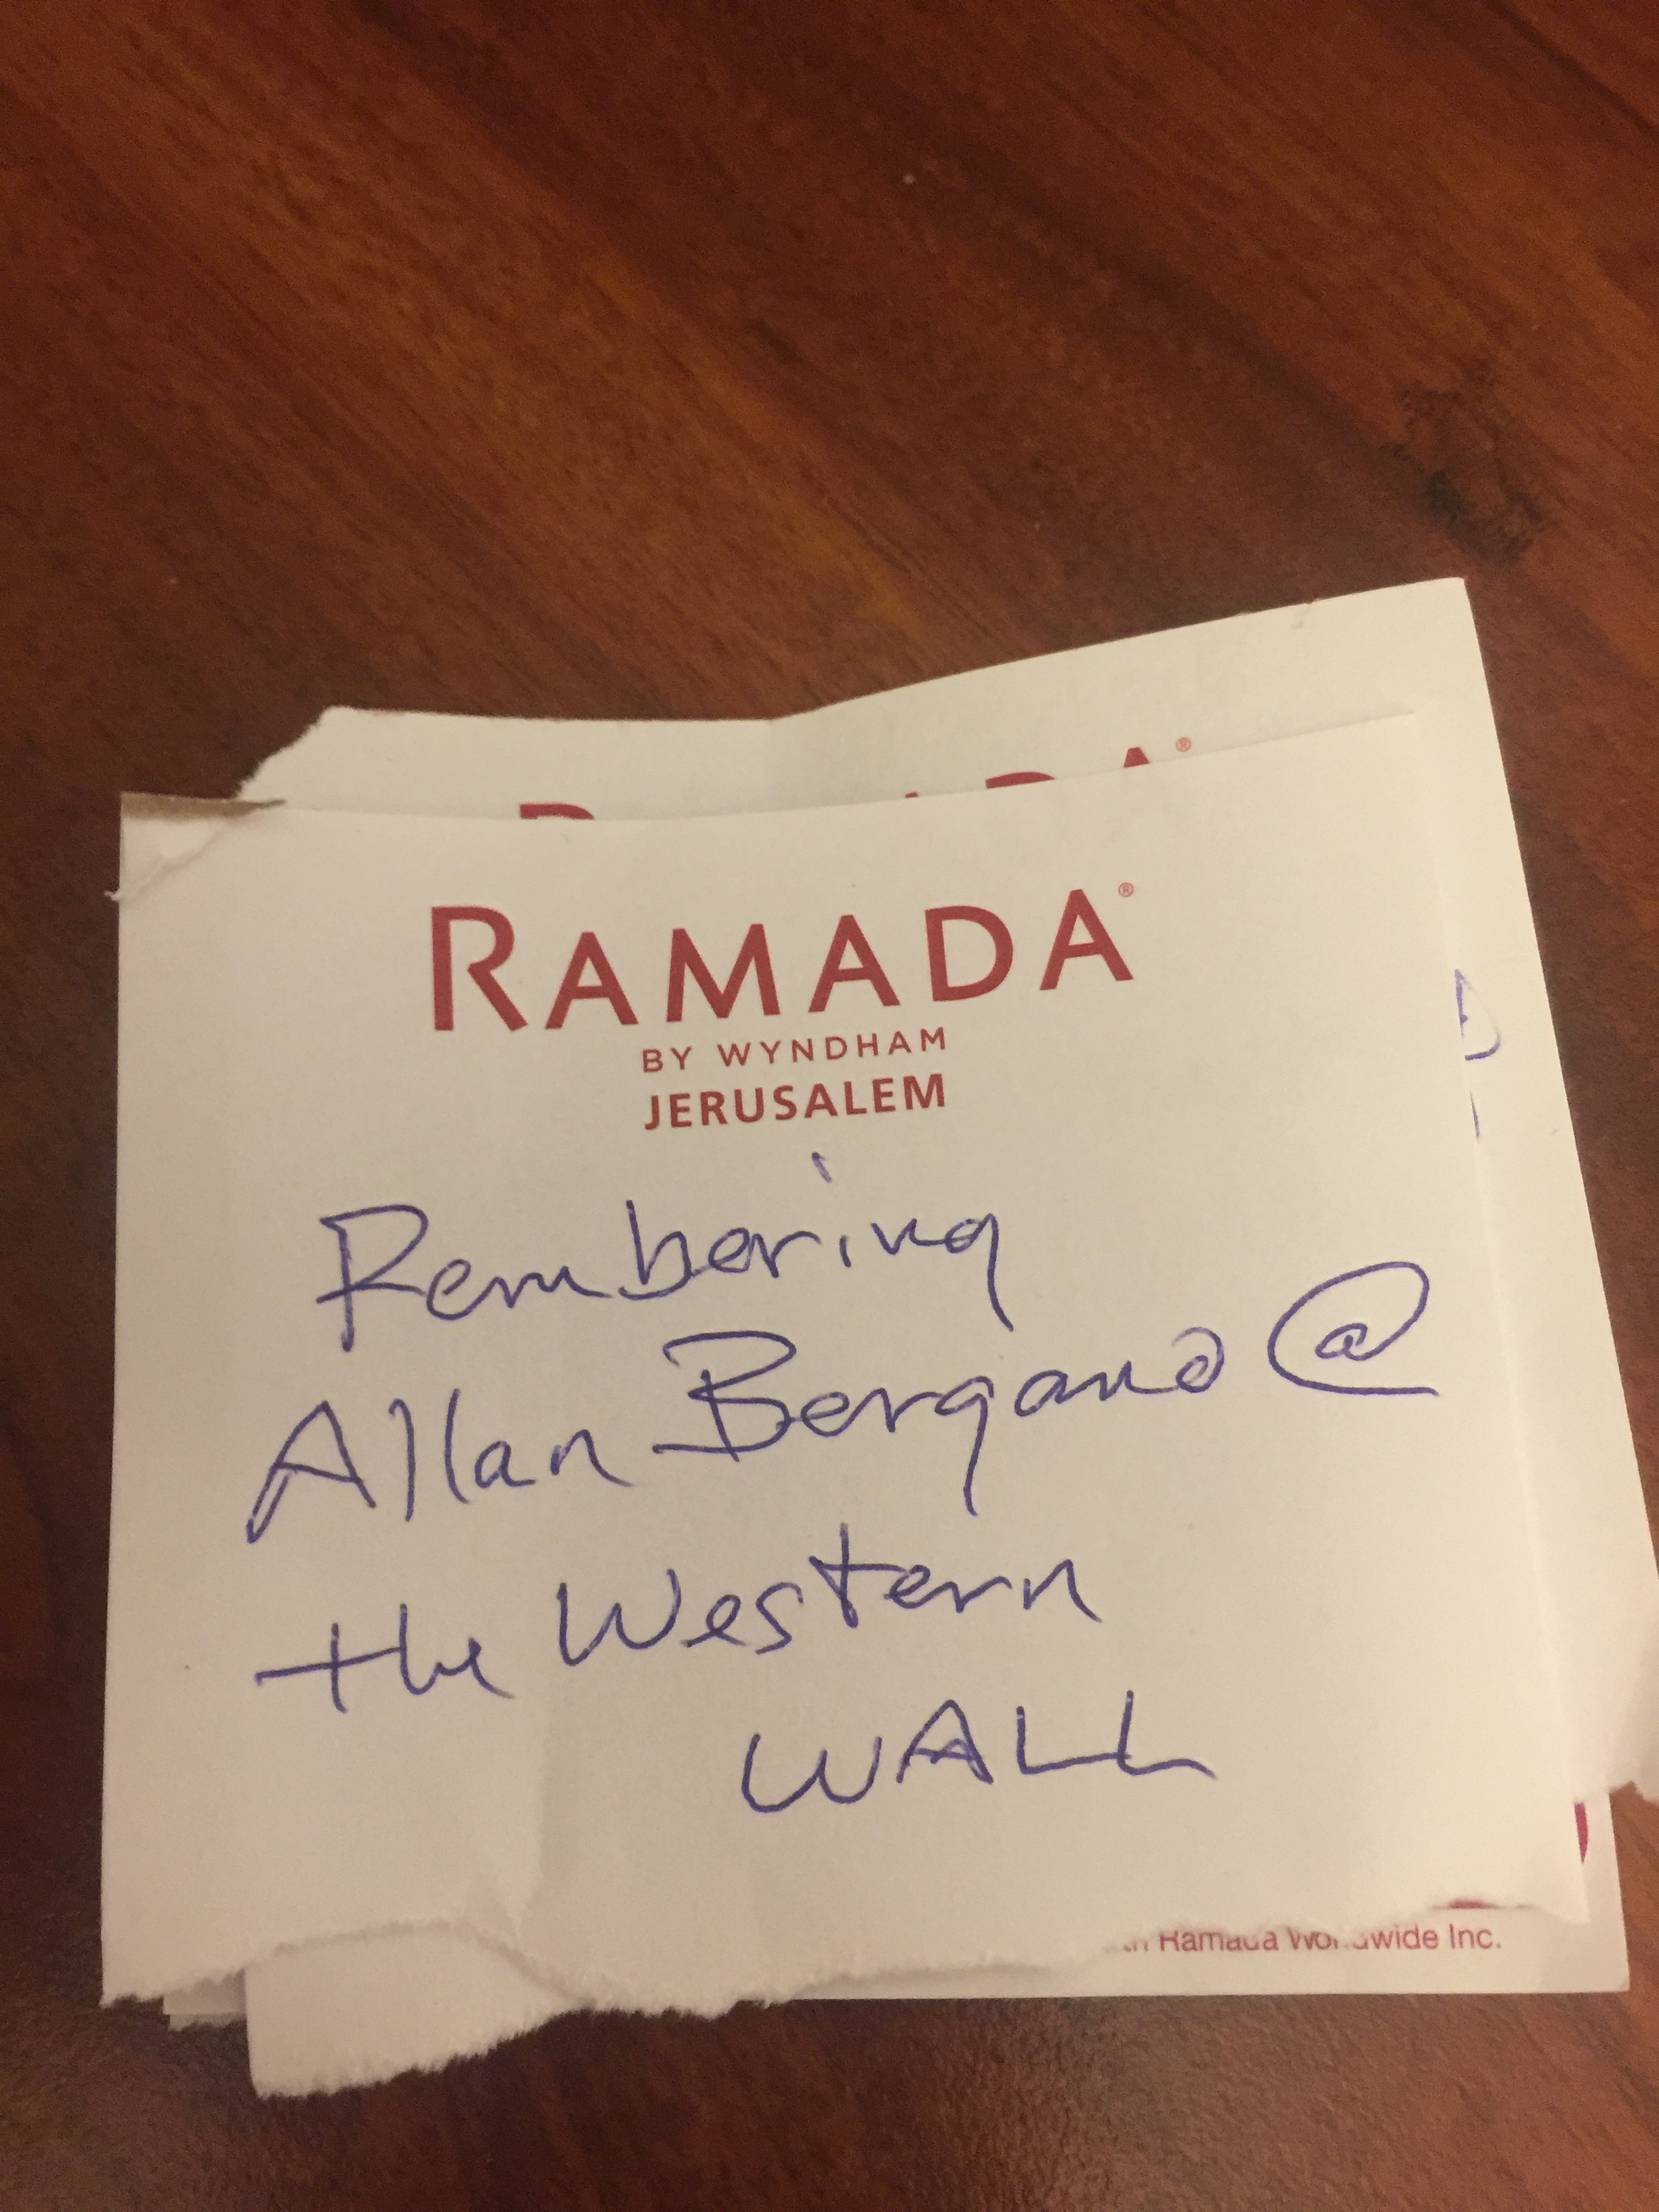 RAMADA®
RAMADA®
BY WYNDHAM
JERUSALEM
Rembering
Allan Bergano @
the Western
WALL
Ramada Worldwide Inc.